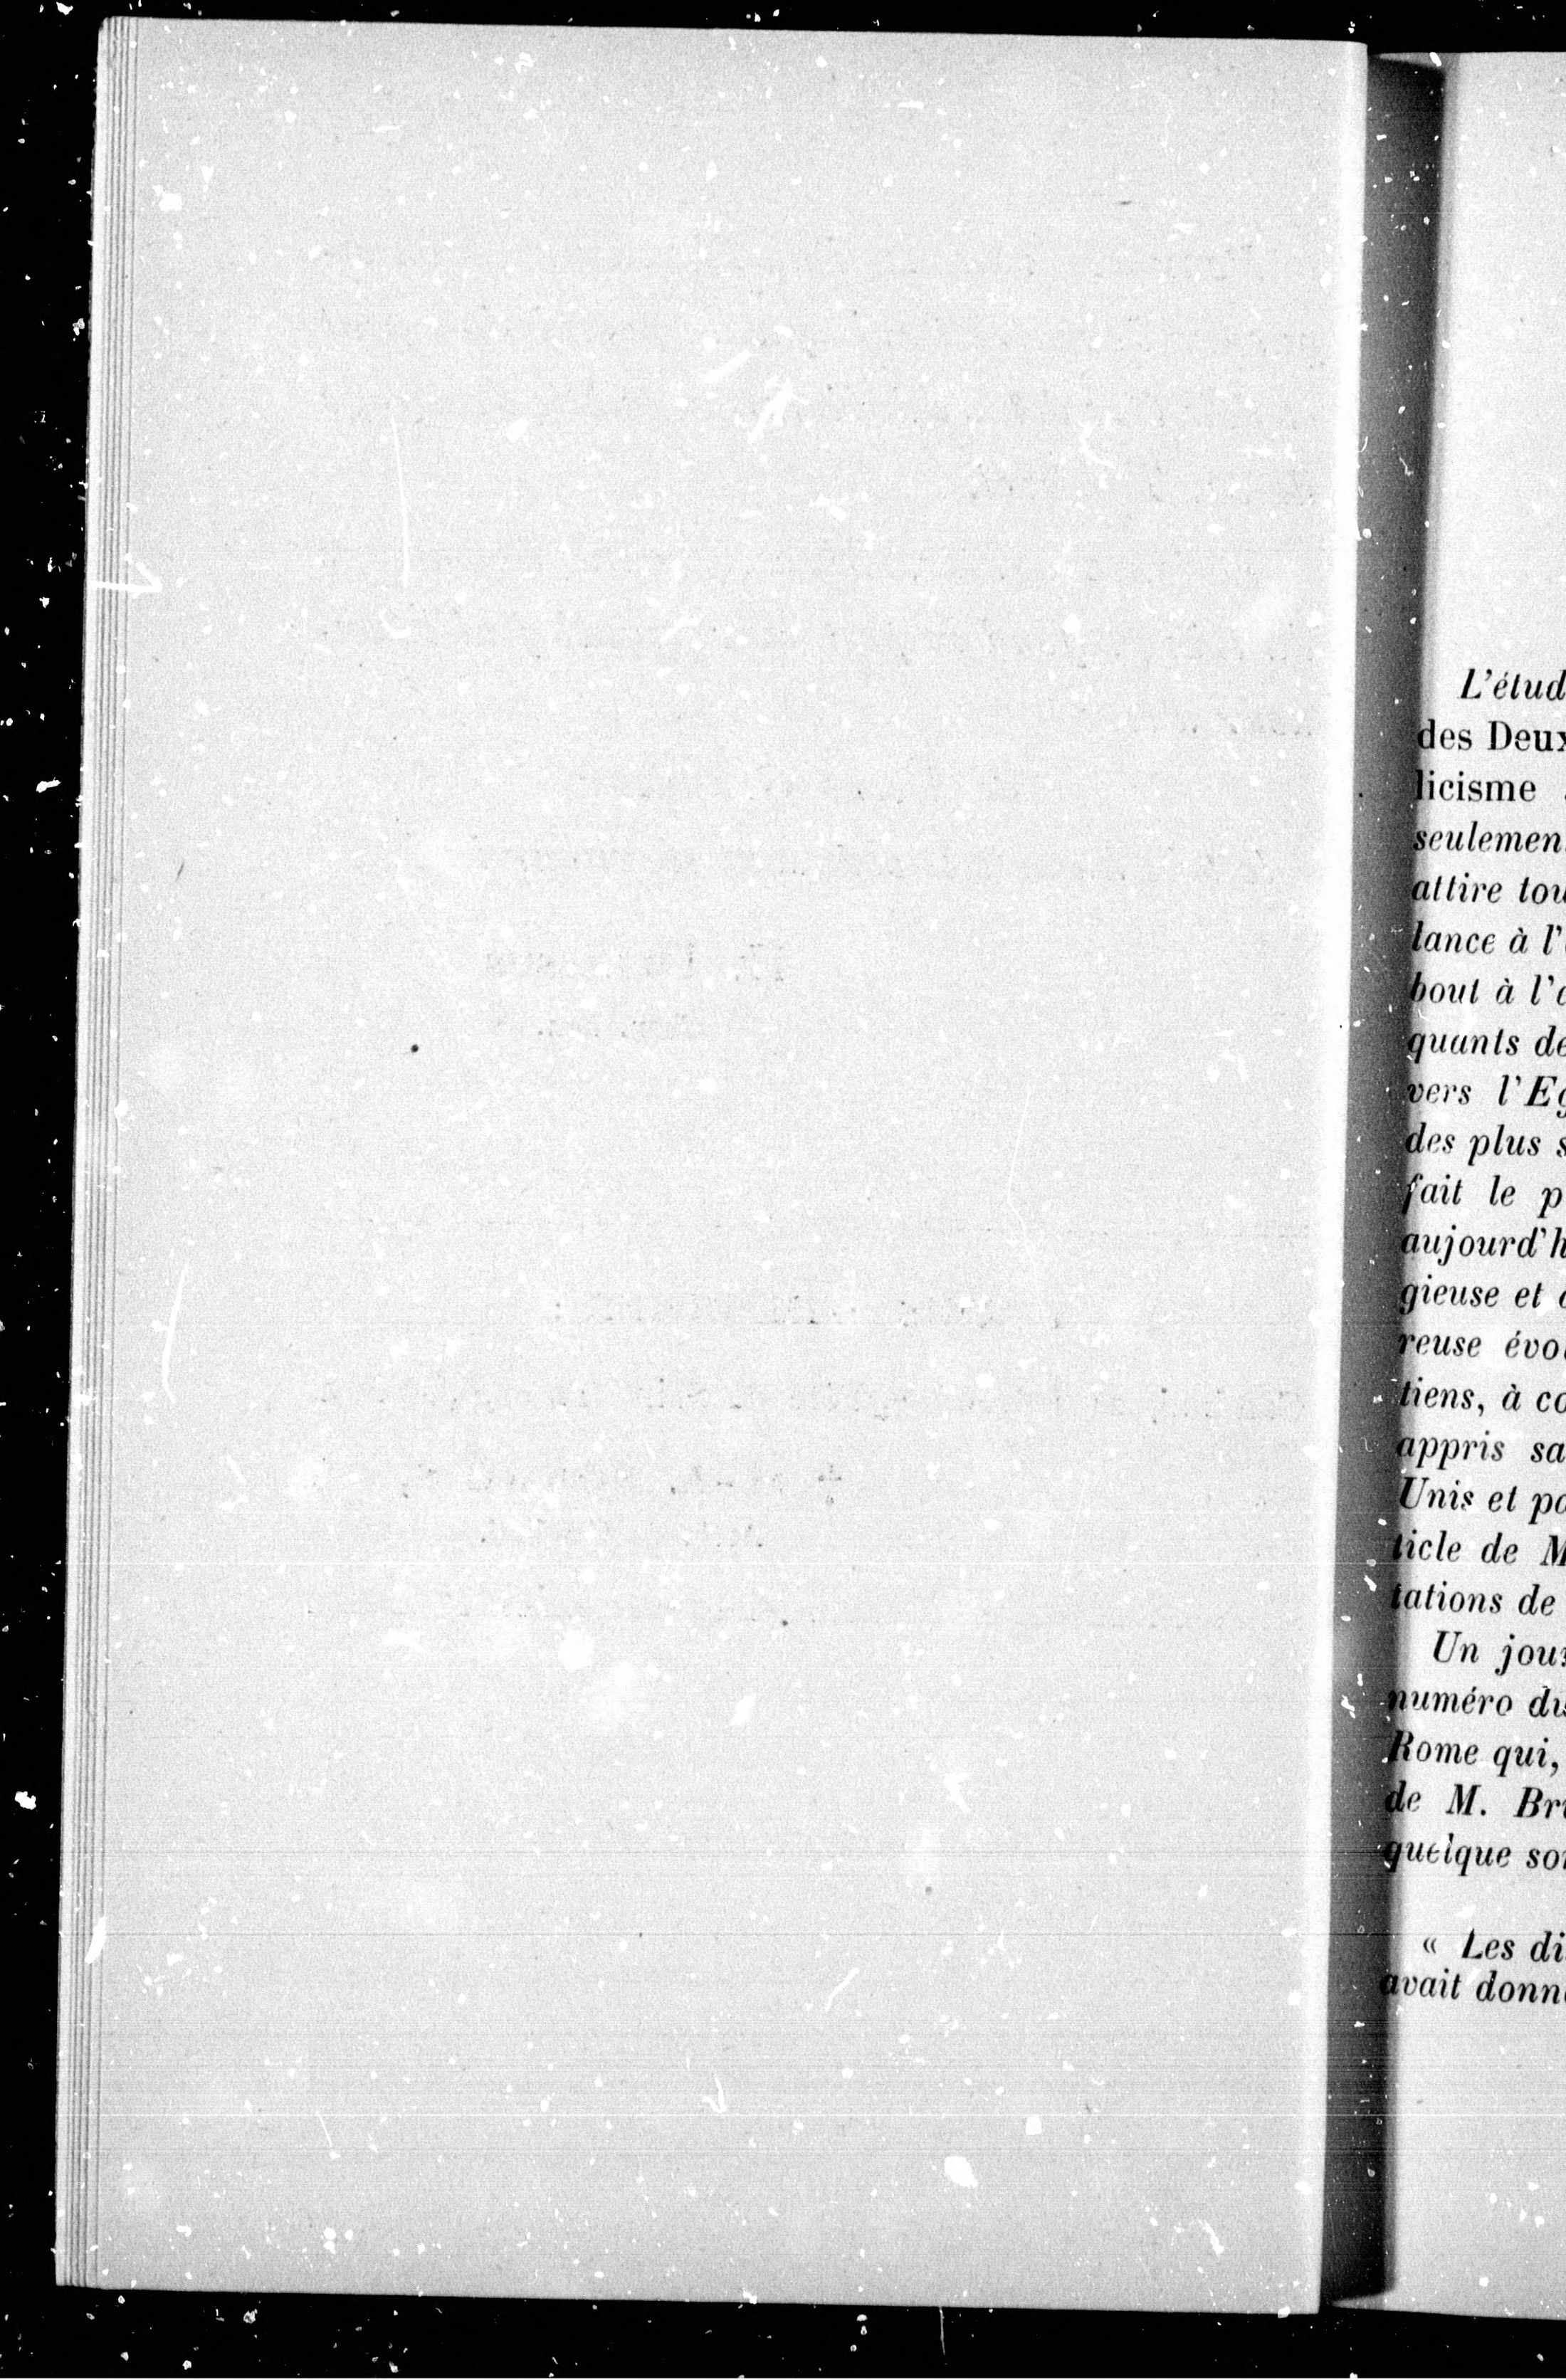 L'étud
des Deux
licisme
seulemen
attire tou
lance à l'
bout à l'
quants de
vers l'Eg
des plus s
fait le p
aujourd'h
gieuse et
reuse évo
tiens, à co
appris sa
Unis et po
ticle de M
tations de
Un jou
numéro du
Rome qui,
de M. Bru
quelque so
« Les di
avait donn